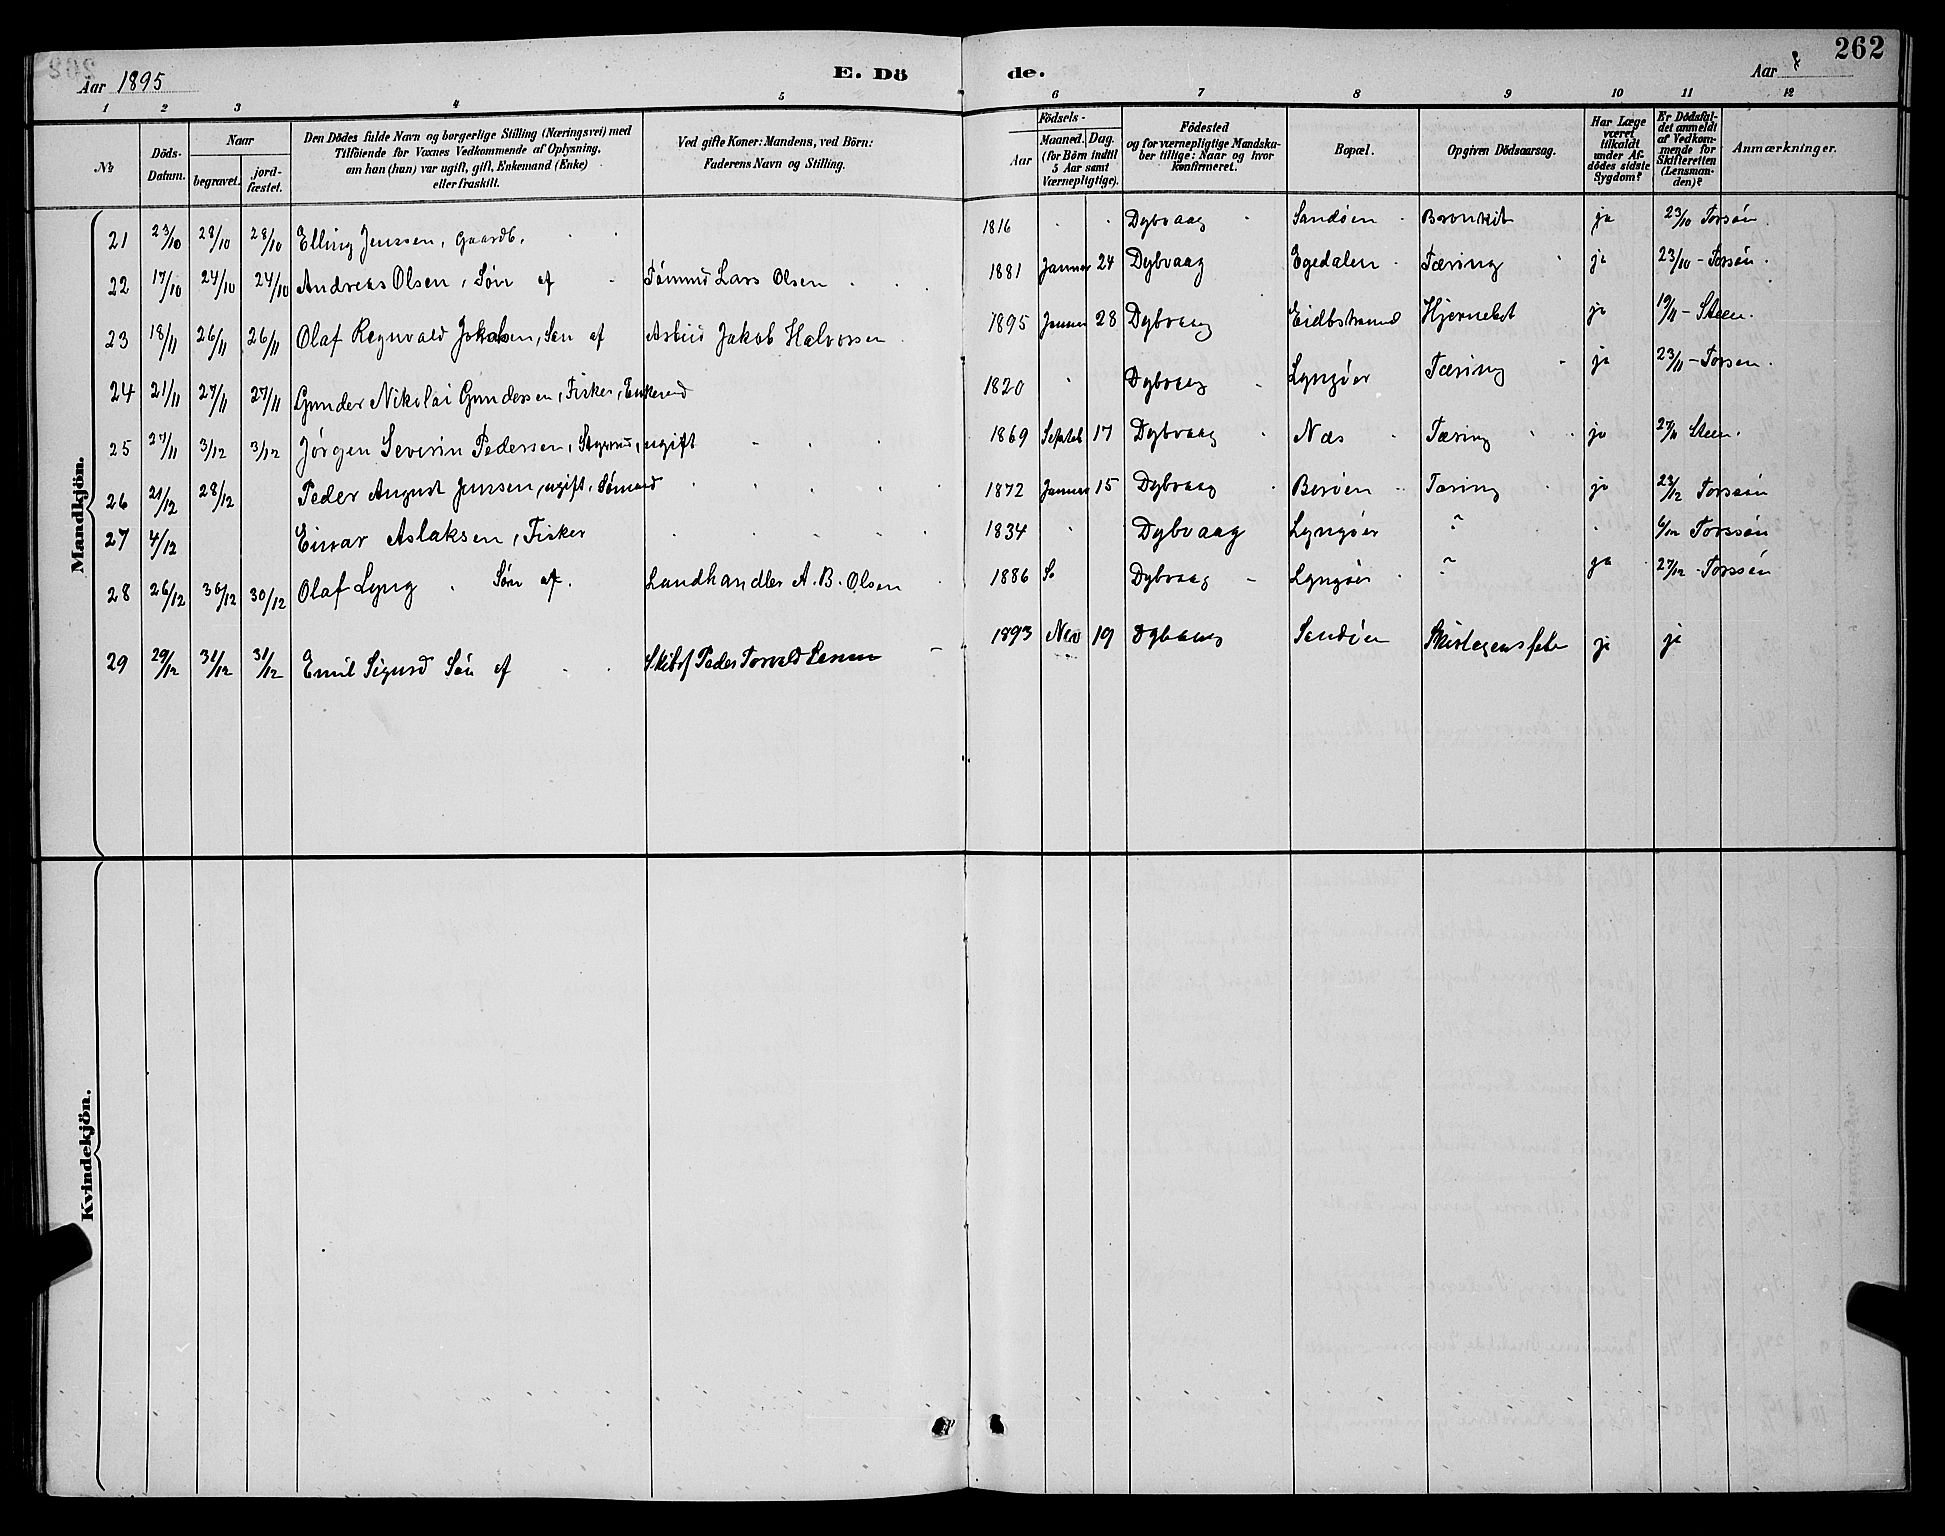 262
Aar 1895 E. Dö de. Aar
1 2 3 4 5 6 7 8 9 10 11 12
№ Döds-Datum. Naar begravet. jord-fæstet. Den Dödes fulde Navn og borgerlige Stilling (Næringsvei) med Tilföiende for Voxnes Vedkommende af Oplysning, om han (hun) var ugift, gift, Enkemand (Enke) eller fraskilt. Ved gifte Koner: Mandens, ved Börn: Faderens Navn og Stilling. Födsels- Aar Maaned. Dag. (for Börn indtil 5 Aar samt Værnepligtige). Födested og for værnepligtige Mandskaber tillige: Naar og hvor konfirmeret. Bopæl. Opgiven Dödsaarsag. Har Læge været tilkaldt under Afdödes sidste Sygdom? Er Dödsfaldet anmeldt af Vedkommende for Skifteretten (Lensmanden)? Anmærkninger.
Mandkjön.
21 23/10 28/10 28/10 Elling Jenssen, Gaardb. 1816 Dybvaag Sandøen Bronkit ja 23/10 Torsøn
22 17/10 24/10 24/10 Andreas Olsen, Søn af Tømmd Lars Olsen 1881 Januar 24 Dybvaag Egedalen Tæring ja 23/10 - Torsøn.
23 18/11 26/11 26/11 Olaf Regnvald Jokobsen, Søn af Jakob Halvorsen 1895 Januar 28 Dybvaag Eidbstrand ja 19/11 - Steen.
24 21/11 27/11 27/11 Gunder Nikolai Gundersen, Fisker, Enkemd 1820 Dybvaag Lyngøer Tæring ja 23/11 - Torsen.
25 27/11 3/12 3/12 Jörgen Severin Pedersen, Styrmd, ugift 1869 Septeb 17 Dybvaag Næs Tæring ja 27/11 Steen.
26 21/12 28/12 Peder August Jensen, ugift, Sømand 1872 Januar 15 Dybvaag Borøen Tæring ja 23/12 Torssøn
27 4/12 Einar Aslaksen, Fisker 1834 Dybvaag Lyngøer ? 6/12 Torssøn
28 26/12 30/12 30/12 Olaf Lyng Søn af. Landhandler A. B. Olsen 1886 Dybvaag Lyngøer ? ja 27/12 - Torssøn
29 29/12 31/12 31/12 Emil Sigurd Søn af Skibsf Peder Torvald 1893 Nov 19 Dybvaag Sandøen ja ja
Kvindekjön.